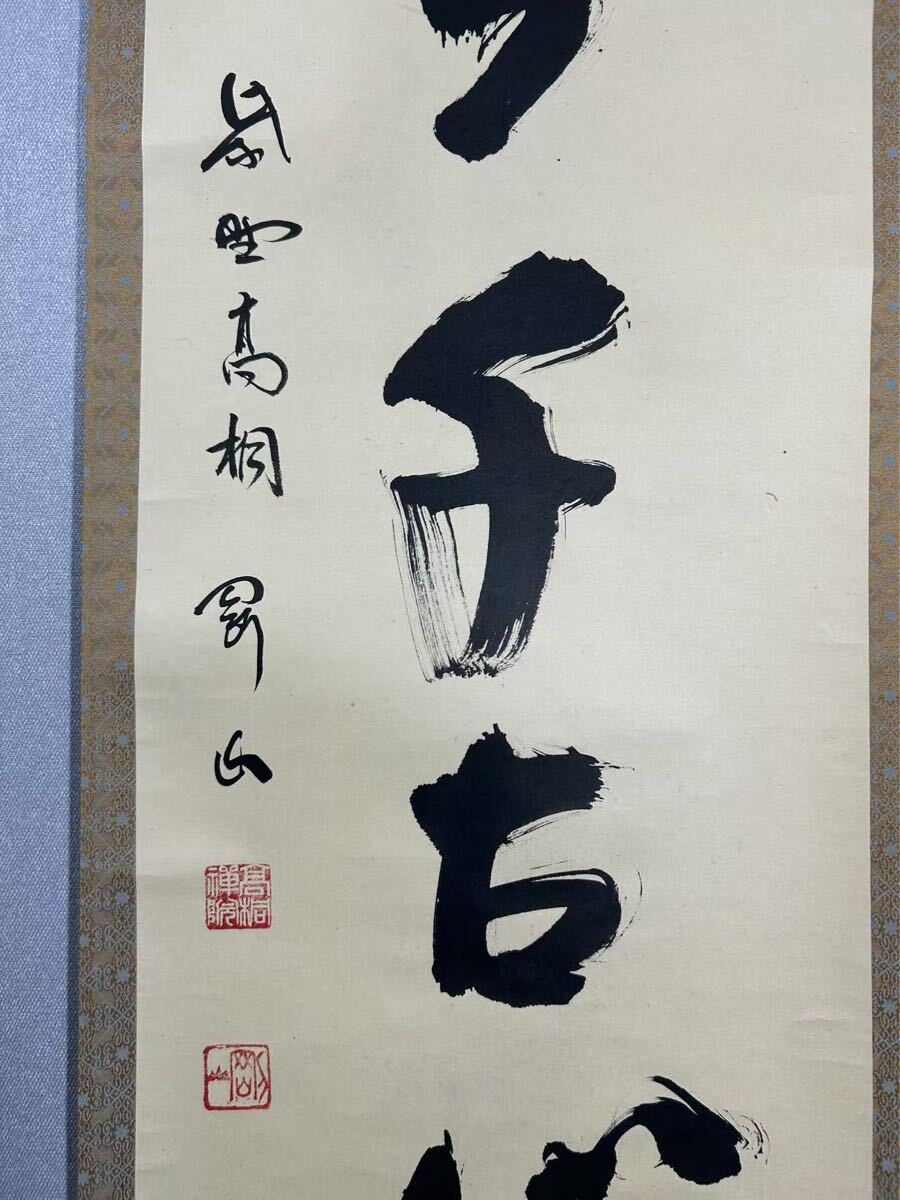 千古
紫野高桐 剛山
高桐禅院
剛山